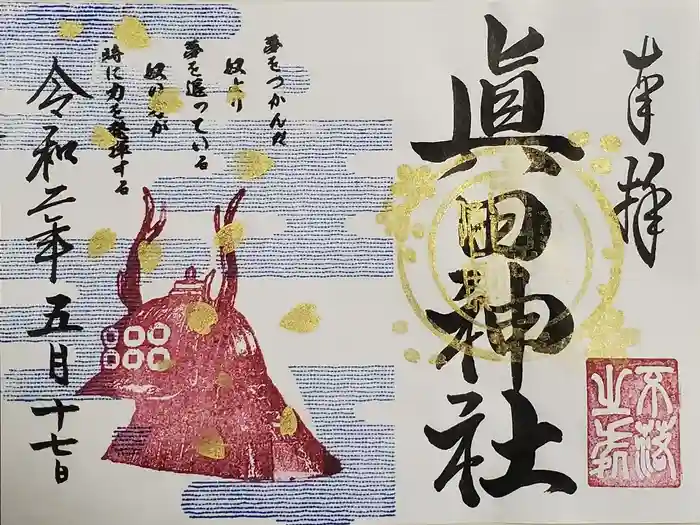 奉拝
眞田神社
不落
之砦
夢をつかんだ
奴より
夢を追っている
奴のほうが
時に力を発揮する
令和二年五月十七日